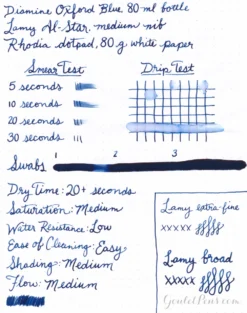 Diamine Oxford Blue 80 ml bottle
Lamy Al-Star, medium nib
Rhodia dotpad, 80 g white paper
Smear Test
Drip Test
5 seconds
10 seconds
20 seconds
30 seconds
1 2 3
Swabs
Dry Time: 20+ seconds
Saturation: Medium
Water Resistance: Low
Ease of Cleaning: Easy
Shading: Medium
Flow: Medium
Lamy extra-fine
xxxxx
Lamy broad
xxxxx
GouletPens.com